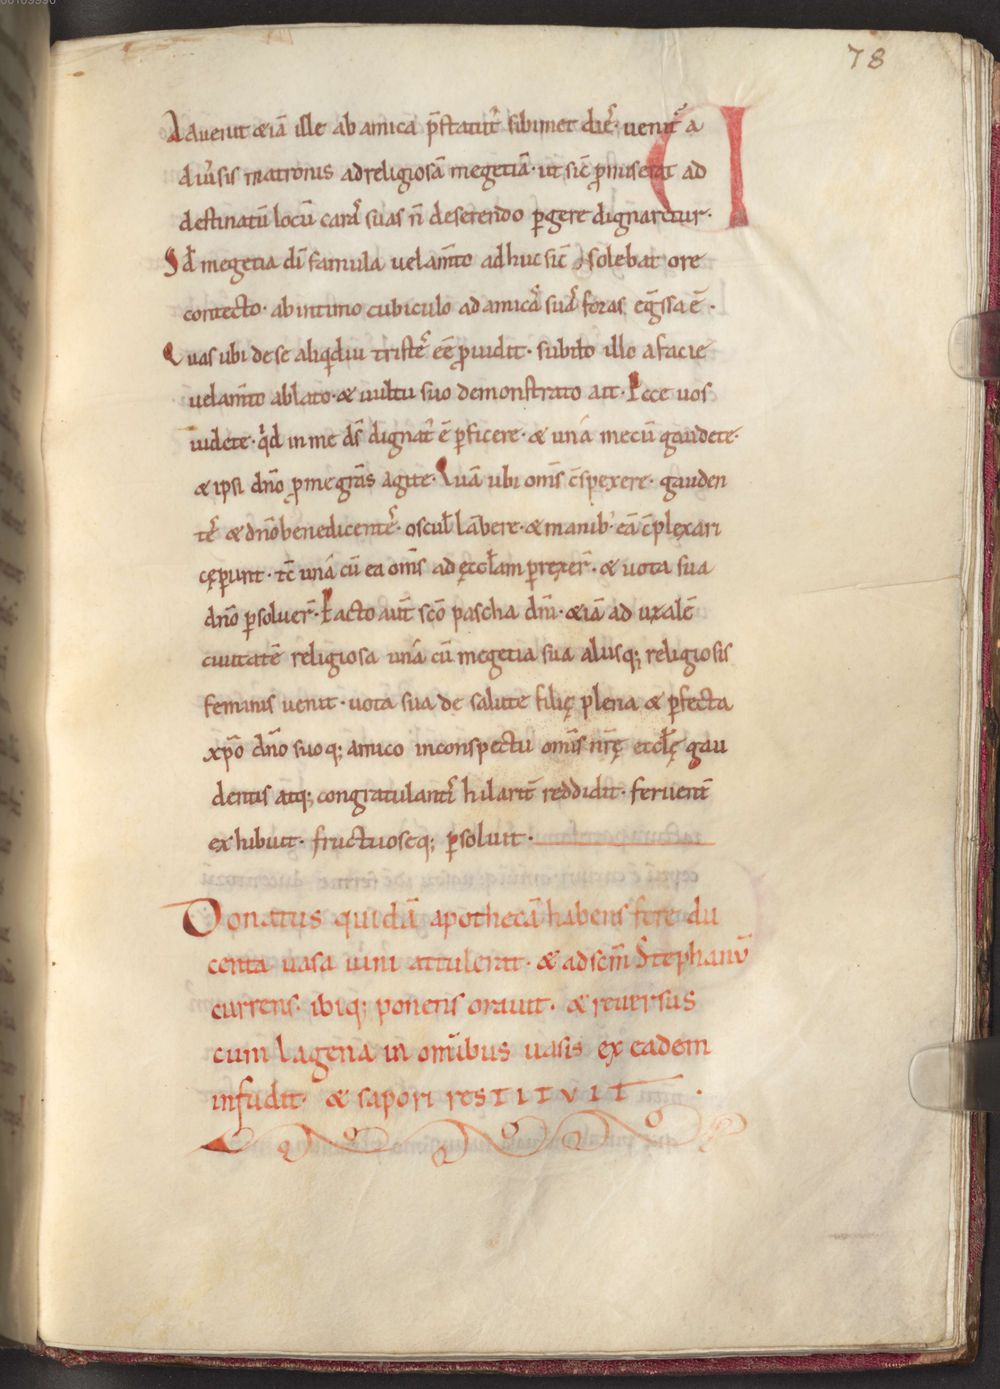 78
Advenit & iā ille ab amica p̄statut᷒ sibimet dieˢ. venit᷒ a
diu᷒sis matronis ad religiosā megetiā. ut sic̄ p̄miserat ad
destinatū locū carā suas n̄ deserendo ꝑgere dignaretur.
Sꝫ megetia dī famula velam̄to adhuc sic̄ solebat ore
contecto. ab intimo cubiculo ad amicā suā foras eg̃ssa ē.
Quas ubi de se aliqdiu tristeˢ eē ꝓuidit. subito illo a facie
velam̄to ablato. & vultu suo demonstrato ait. Ecce vos
videte. qd in me dˢ dignat᷒ ē ꝑficere. & unā mecū gaudete.
& ipsi dn̄o ꝓ me gr̄as agite. Quā ubi om̄s c̄spexere. gauden
teˢ & dn̄o benedicenteˢ. oscul̄ lābere. & manib᷒ eā c̄plęxari
cęꝑunt. tc̄ unā cū ea om̄s ad ęccl̄am ꝑrexer̄. & vota sua
dn̄o ꝑsoluer̄. Facto aut̄ sc̄o pascha dn̄i. & iā ad uzalē
civitatē religiosa unā cū megetia sua aliisq; religiosis
feminis venit. vota sua de salute filię plena & ꝑfecta
xp̄o dn̄o suoq; amico in conspectu om̄is nr̄ę eccl̄ę gau
dentis atq; congratulantˢ hilarit̄ reddidit. fervent̄
exhibuit. fructuoseq; ꝑsoluit.
Donatus quidā apothecā habens fere du
centa vasa vini attulerat. & ad sc̄m Stephanū
currens. ibiq; ponens oravit. & reversus
cum lagena in omībus vasis ex eadem
infudit. & sapori resTITVIT.